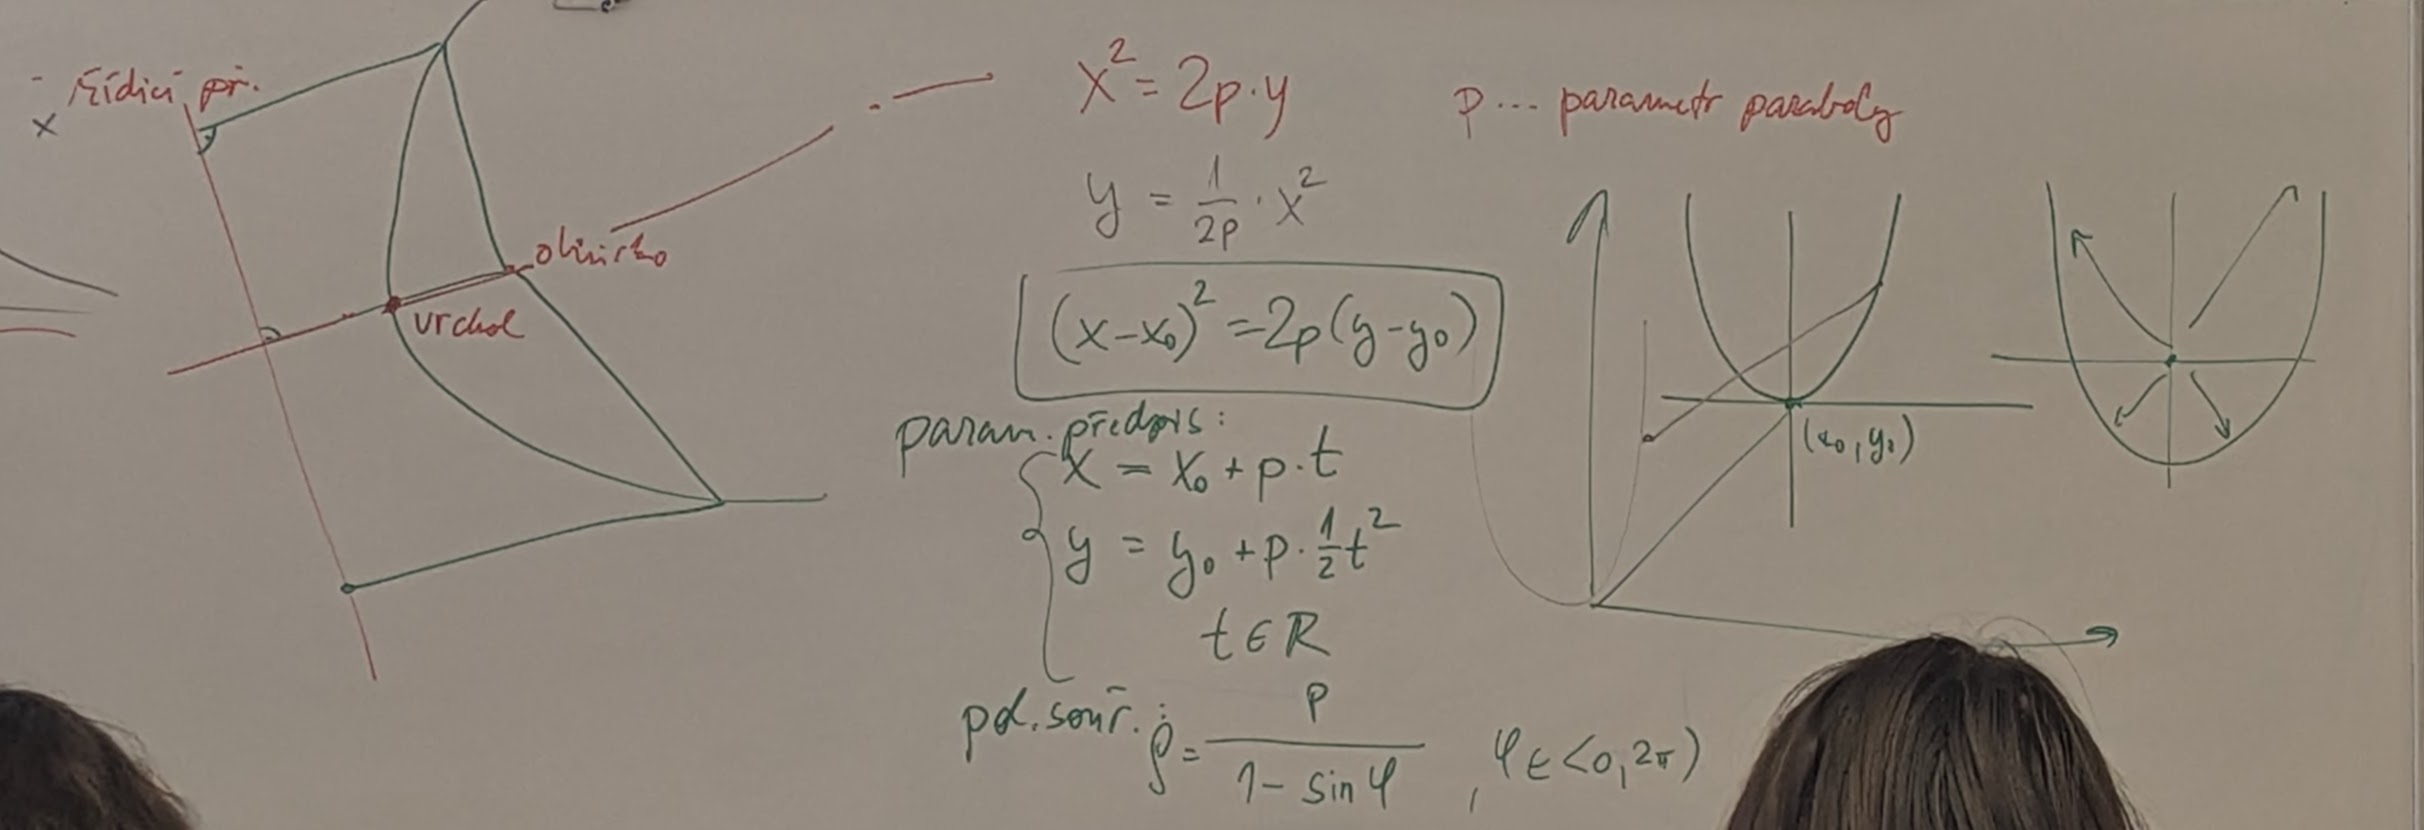 řídící př.
x
ohnisko
vrchol
x² = 2p·y
p... parametr paraboly
y = 1/2p · x²
(x-x₀)² = 2p(y-y₀)
param. předpis:
x = x₀ + p·t
y = y₀ + p·½t²
t ∈ ℝ
pol. souř.:
ρ = p/(1 - sin φ), φ ∈ <0, 2π)
(x₀, y₀)